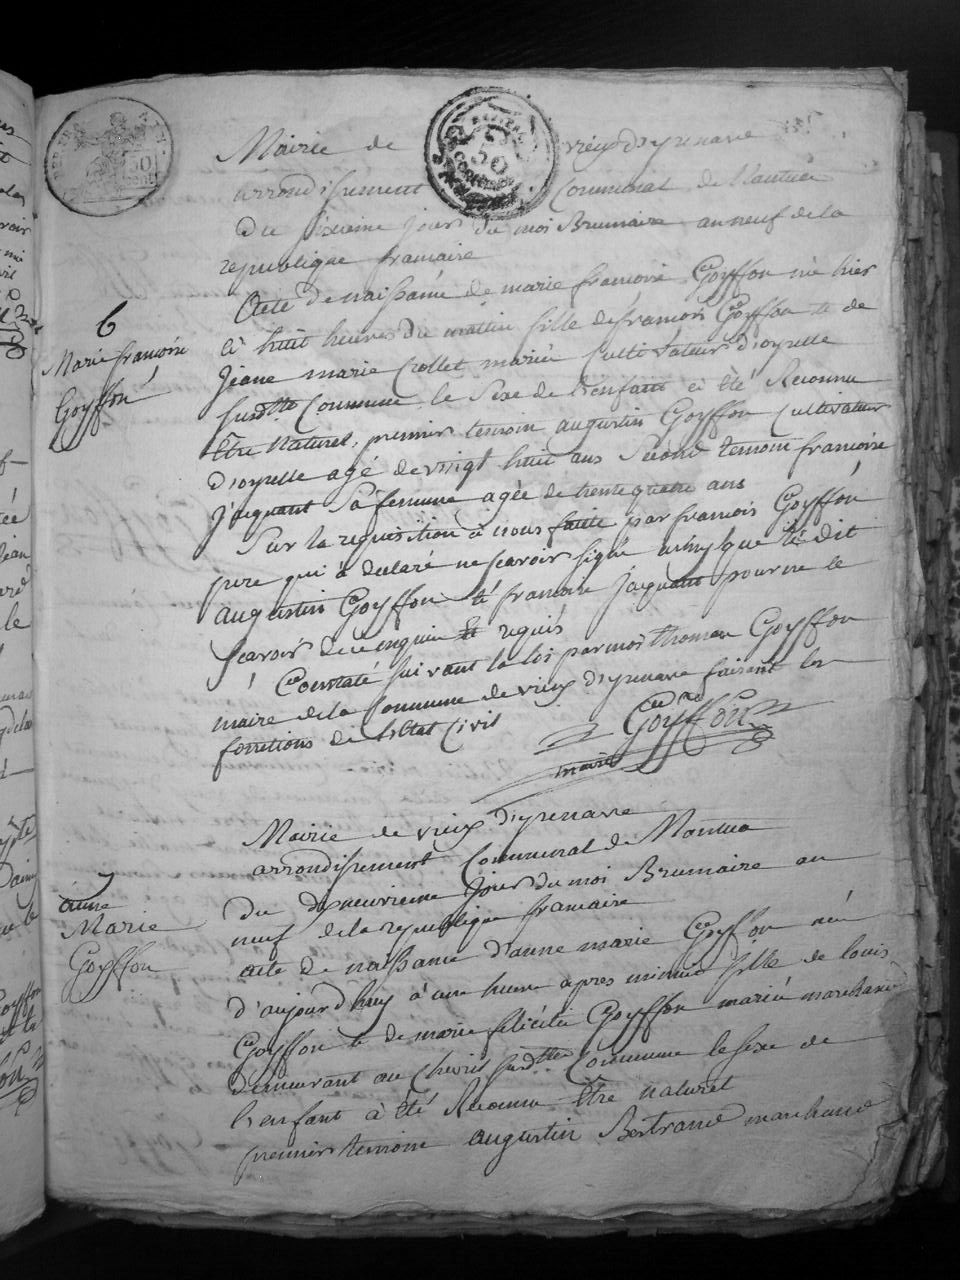 Mairie de vieux d'ysenave
arrondissement Communal de Nantua
Du sixieme Jour du moi Brumaire an neuf de la
republique francaise
6
Marie francoise
Goyffon
Acte de naissance de marie francoise Goyffon née hier
à huit heures du matin fille de francois Goyffon et de
Jeane marie Crollet mariés Cultivateurs d'oyselle
susdtte Commune le Sexe de l'enfant a été Reconnu
Etre Naturel, premier temoin augustin Goyffon Cultivateur
D'oyselle agé de vingt huit ans Second temoin francoise
Jaquant Sa femme agée de trente quatre ans
Sur la requisition à nous faite par francois Goyffon
pere qui a declaré ne scavoir signé ainsy que le dit
augustin Goyffon et francoise Jaquant pour ne le
scavoir de ce enquis et requis
Constaté suivant la loi par moi thomas Goyffon
maire de la Commune de vieux d'ysenave faisant les
fonctions de l'Etat Civil
Goyffon
maire
Mairie de vieux d'ysenave
arrondissement Communal de Nantua
7
anne
Marie
Goyffon
Du dixneuvieme Jour du moi Brumaire an
neuf de la republique francaise
acte de naissance d'anne marie Goyffon née
d'aujourd'huy à une heure apres minuit fille de louis
Goyffon et de marie felicité Goyffon mariés marchand
demeurant au Chevril susdtte Commune le sexe de
l'enfant à été Reconnu Etre naturel
premier temoin augustin Bertrand marchand